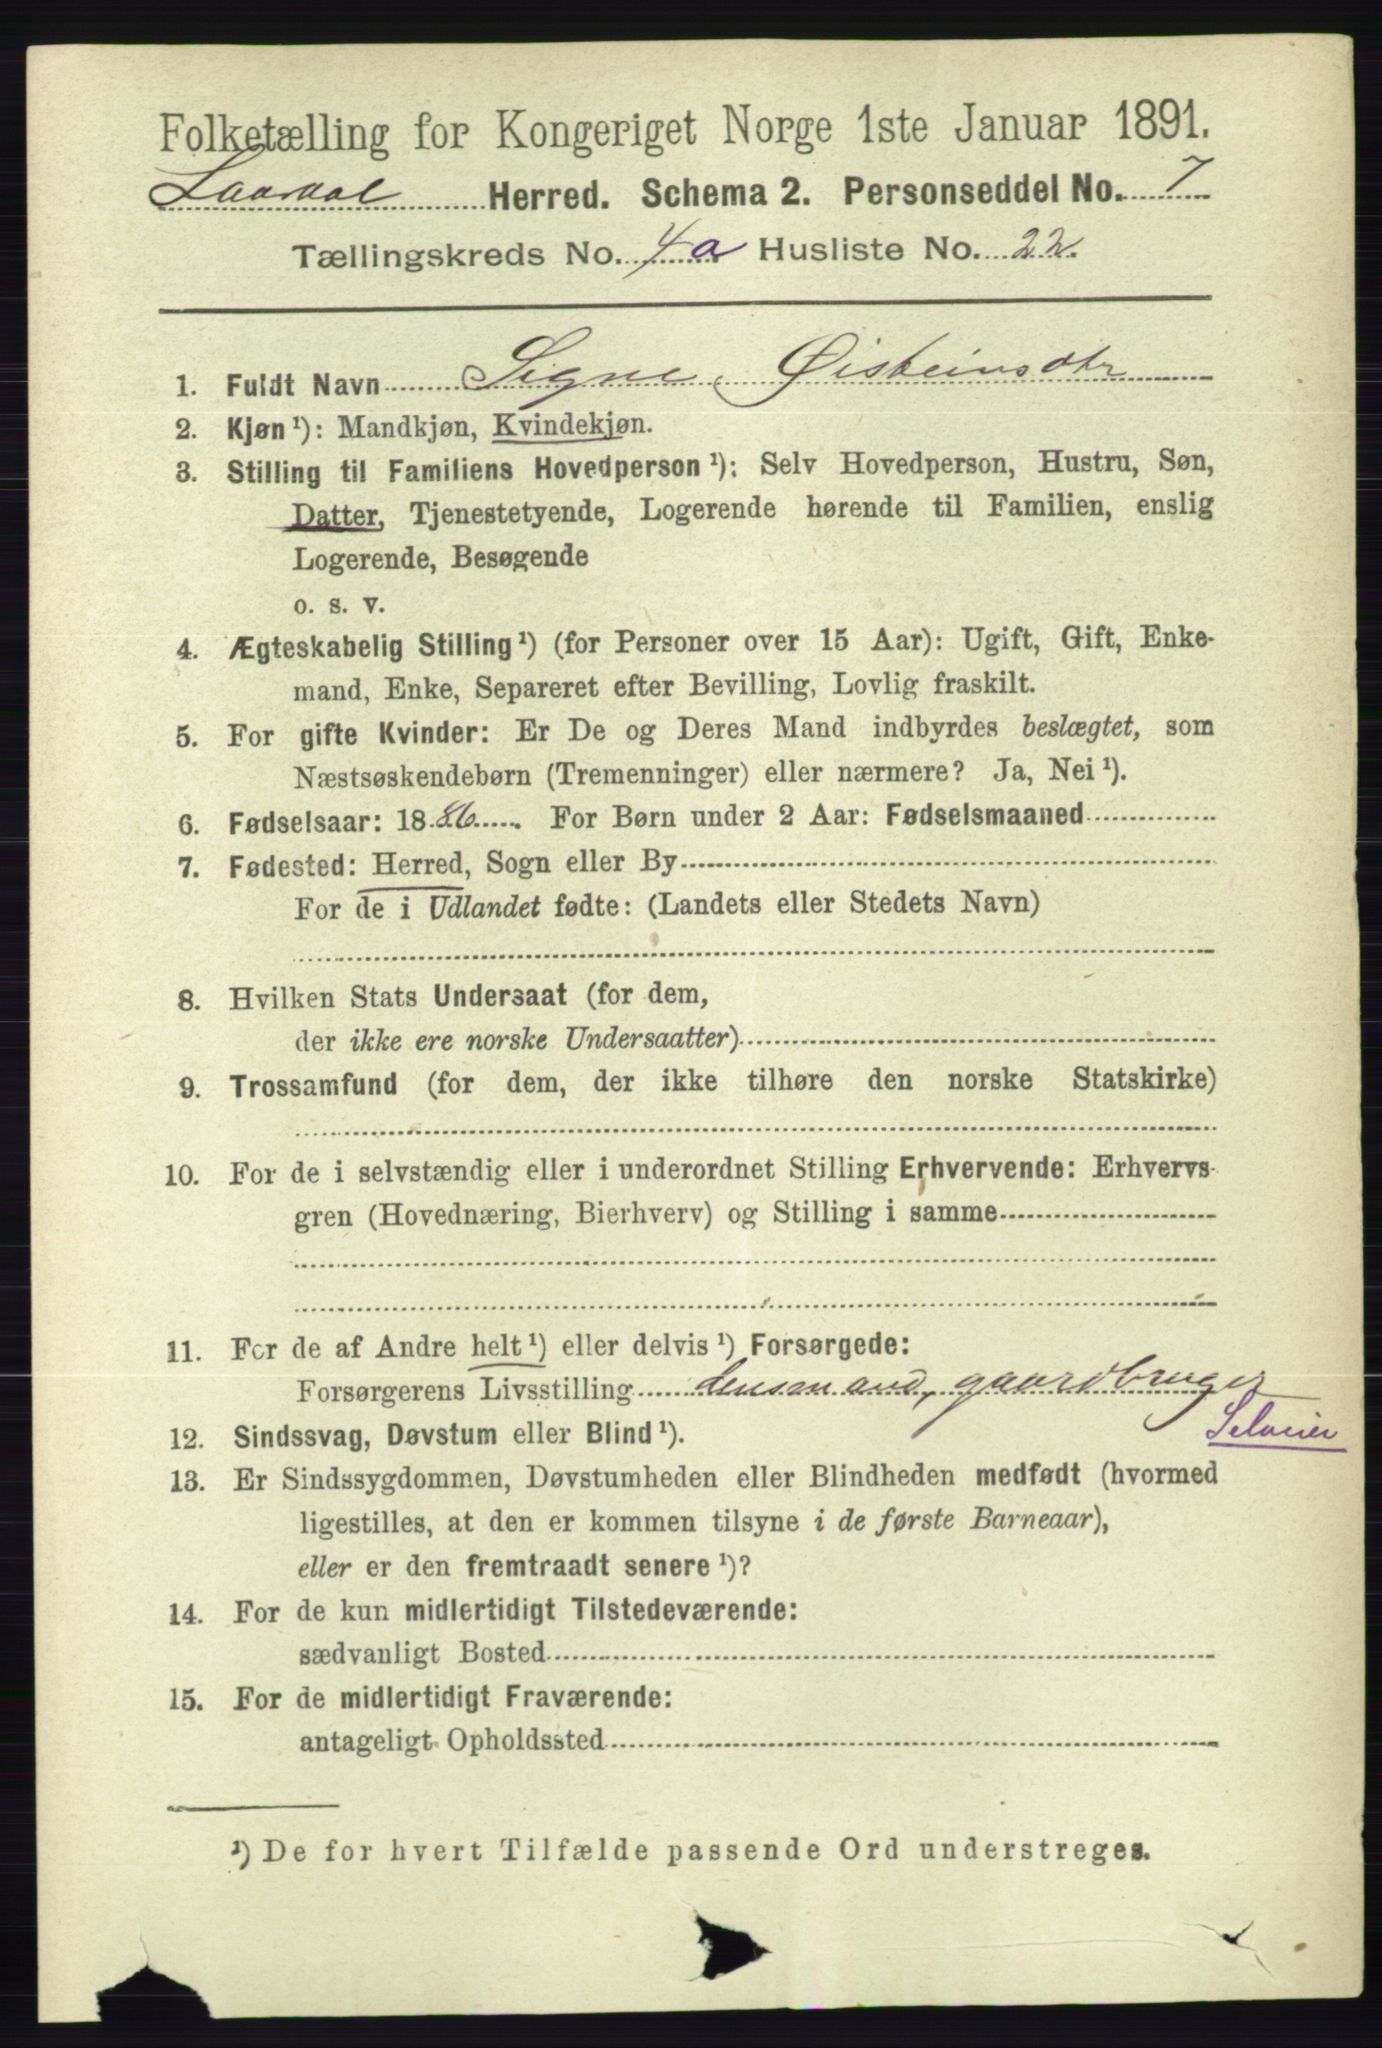 Folketælling for Kongeriget Norge 1ste Januar 1891.
Laardal Herred. Schema 2. Personseddel No. 7
Tællingskreds No. 4a Husliste No. 22.
1. Fuldt Navn Signe Øisteinsdtr
2. Kjøn ¹): Mandkjøn, Kvindekjøn.
3. Stilling til Familiens Hovedperson ¹): Selv Hovedperson, Hustru, Søn,
Datter, Tjenestetyende, Logerende hørende til Familien, enslig
Logerende, Besøgende
o. s. v.
4. Ægteskabelig Stilling ¹) (for Personer over 15 Aar): Ugift, Gift, Enke-
mand, Enke, Separeret efter Bevilling, Lovlig fraskilt.
5. For gifte Kvinder: Er De og Deres Mand indbyrdes beslægtet, som
Næstsøskendebørn (Tremenninger) eller nærmere? Ja, Nei ¹).
6. Fødselsaar: 1886. For Børn under 2 Aar: Fødselsmaaned
7. Fødested: Herred, Sogn eller By
For de i Udlandet fødte: (Landets eller Stedets Navn)
8. Hvilken Stats Undersaat (for dem,
der ikke ere norske Undersaatter)
9. Trossamfund (for dem, der ikke tilhøre den norske Statskirke)
10. For de i selvstændig eller i underordnet Stilling Erhvervende: Erhvervs-
gren (Hovednæring, Bierhverv) og Stilling i samme
11. For de af Andre helt ¹) eller delvis ¹) Forsørgede:
Forsørgerens Livsstilling Lensmand, gaardbruger
Selveier
12. Sindssvag, Døvstum eller Blind ¹).
13. Er Sindssygdommen, Døvstumheden eller Blindheden medfødt (hvormed
ligestilles, at den er kommen tilsyne i de første Barneaar),
eller er den fremtraadt senere ¹)?
14. For de kun midlertidigt Tilstedeværende:
sædvanligt Bosted
15. For de midlertidigt Fraværende:
antageligt Opholdssted
¹) De for hvert Tilfælde passende Ord understreges.